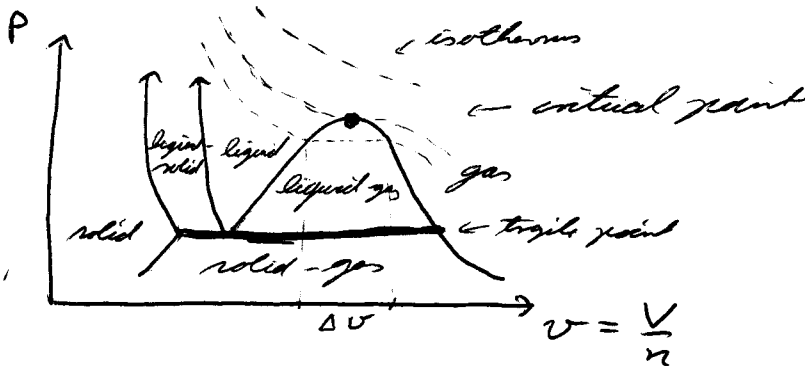 P
isotherms
critical point
liquid-
solid
liquid
liquid-gas
gas
solid
triple point
solid-gas
Δv
v = V/n